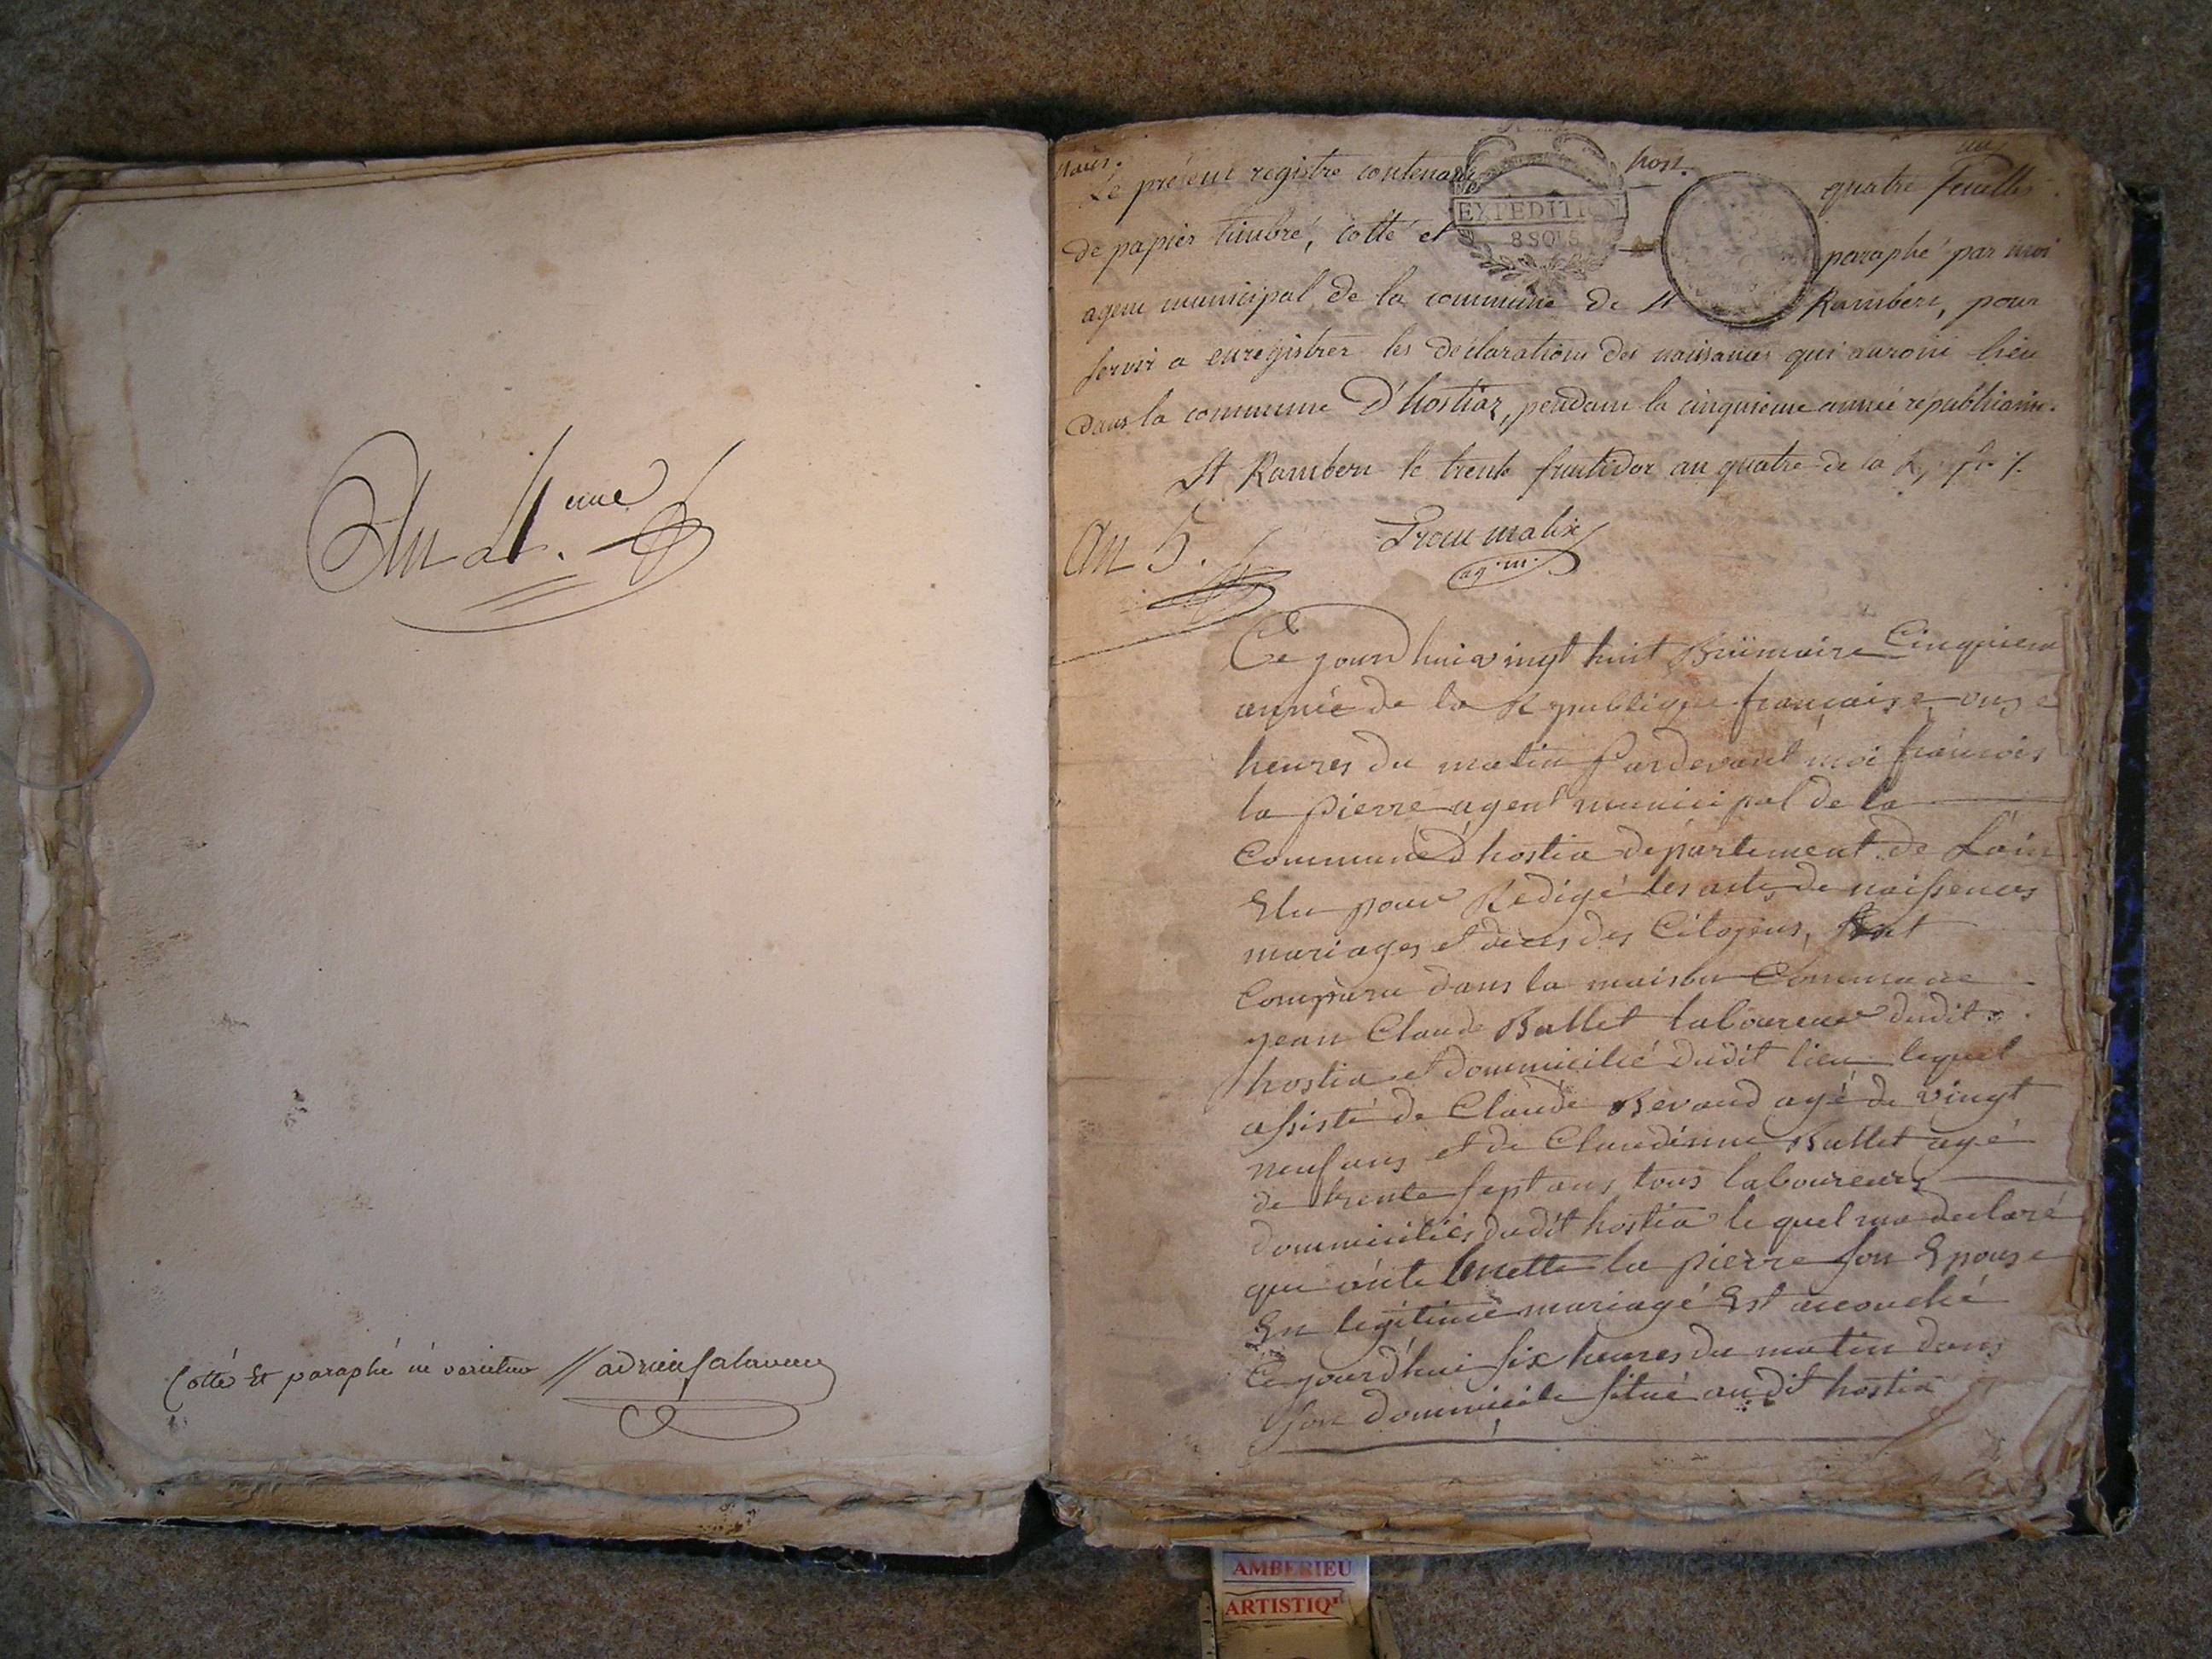 An 4.eme
Cotté Et paraphé né varietur
Nais. host. un
Le présent registre contenant quatre feuilles
EXPEDITION
8 SOLS
de papier timbré, cotté et paraphé par moi
agent municipal de la commune de St Rambert, pour
servir a enregistrer les déclarations des naissances qui auront lieu
dans la commune D'hostiaz, pendant la cinquieme année républicaine.
St Rambert le trente fructidor an quatre de la R. fr.
an 5.
ag. m.
Ce jourdhui vingt huit Brümaire Cinquieme
année de la Republique francaise onze
heures du matin Pardevant moi francois
la pierre agent municipal de la
Commune d'hostia département de Lain
Elu pour Redigé les acte de naissences
mariages et deces des Citoyens, sont
Comparu dans la maison Commune
jean Claude Ballet laboureur dudit
hostia et dommicilié dudit lieu lequel
assisté de Claude Bevand agé de vingt
neuf ans et de Claudinne Ballet agé
de trente sept ans tous laboureurs
dommiciliés dudit hostia lequel ma declaré
que la pierre son Epouse
En legitime mariagé Est accouché
Ce jourd'hui six heures du matin dans
son dommicile situé audit hostia
AMBERIEU
ARTISTIQ